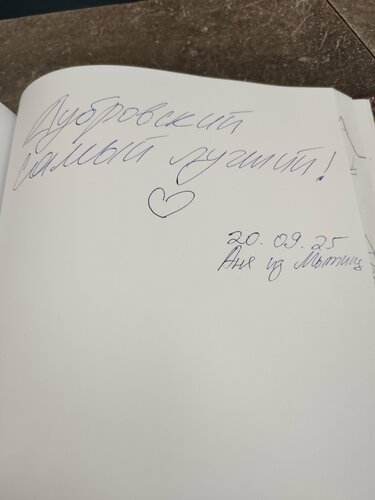 Дубровский
самый лучший!
20.09.25
Аня из Мытищ